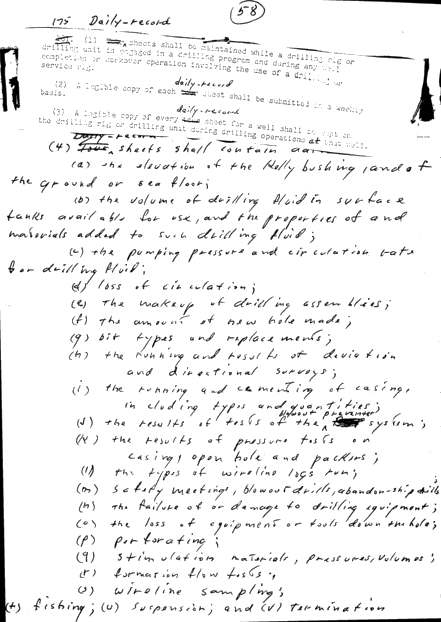 58
175 Daily-record
(1) sheets shall be maintained while a drilling rig or
drilling unit is engaged in a drilling program and during any well
completion or workover operation involving the use of a drilling or
service rig.
daily-record
(2) A legible copy of each sheet shall be submitted on a weekly
basis.
daily-record
(3) A legible copy of every sheet for a well shall be kept on
the drilling rig or drilling unit during drilling operations at that well.
Daily-record
(4) sheets shall contain
(a) the elevation of the Kelly bushing and of
the ground or sea floor;
(b) the volume of drilling fluid in surface
tanks available for use, and the properties of and
materials added to such drilling fluid;
(c) the pumping pressure and circulation rate
for drilling fluid;
(d) loss of circulation;
(e) The makeup of drilling assemblies;
(f) The amount of new hole made;
(g) bit types and replacements;
(h) the running and results of deviation
and directional surveys;
(i) the running and cementing of casing,
including types and quantities;
blowout preventer
(J) the results of tests of the system;
(K) the results of pressure tests on
casing, open hole and packers;
(l) the types of wireline logs run;
(m) safety meetings, blowout drills, abandon-ship drills;
(n) the failure of or damage to drilling equipment;
(o) the loss of equipment or tools down the hole;
(p) perforating;
(q) stimulation materials, pressures, volumes;
(r) formation flow tests;
(s) wireline sampling;
(t) fishing; (u) suspension; and (v) termination